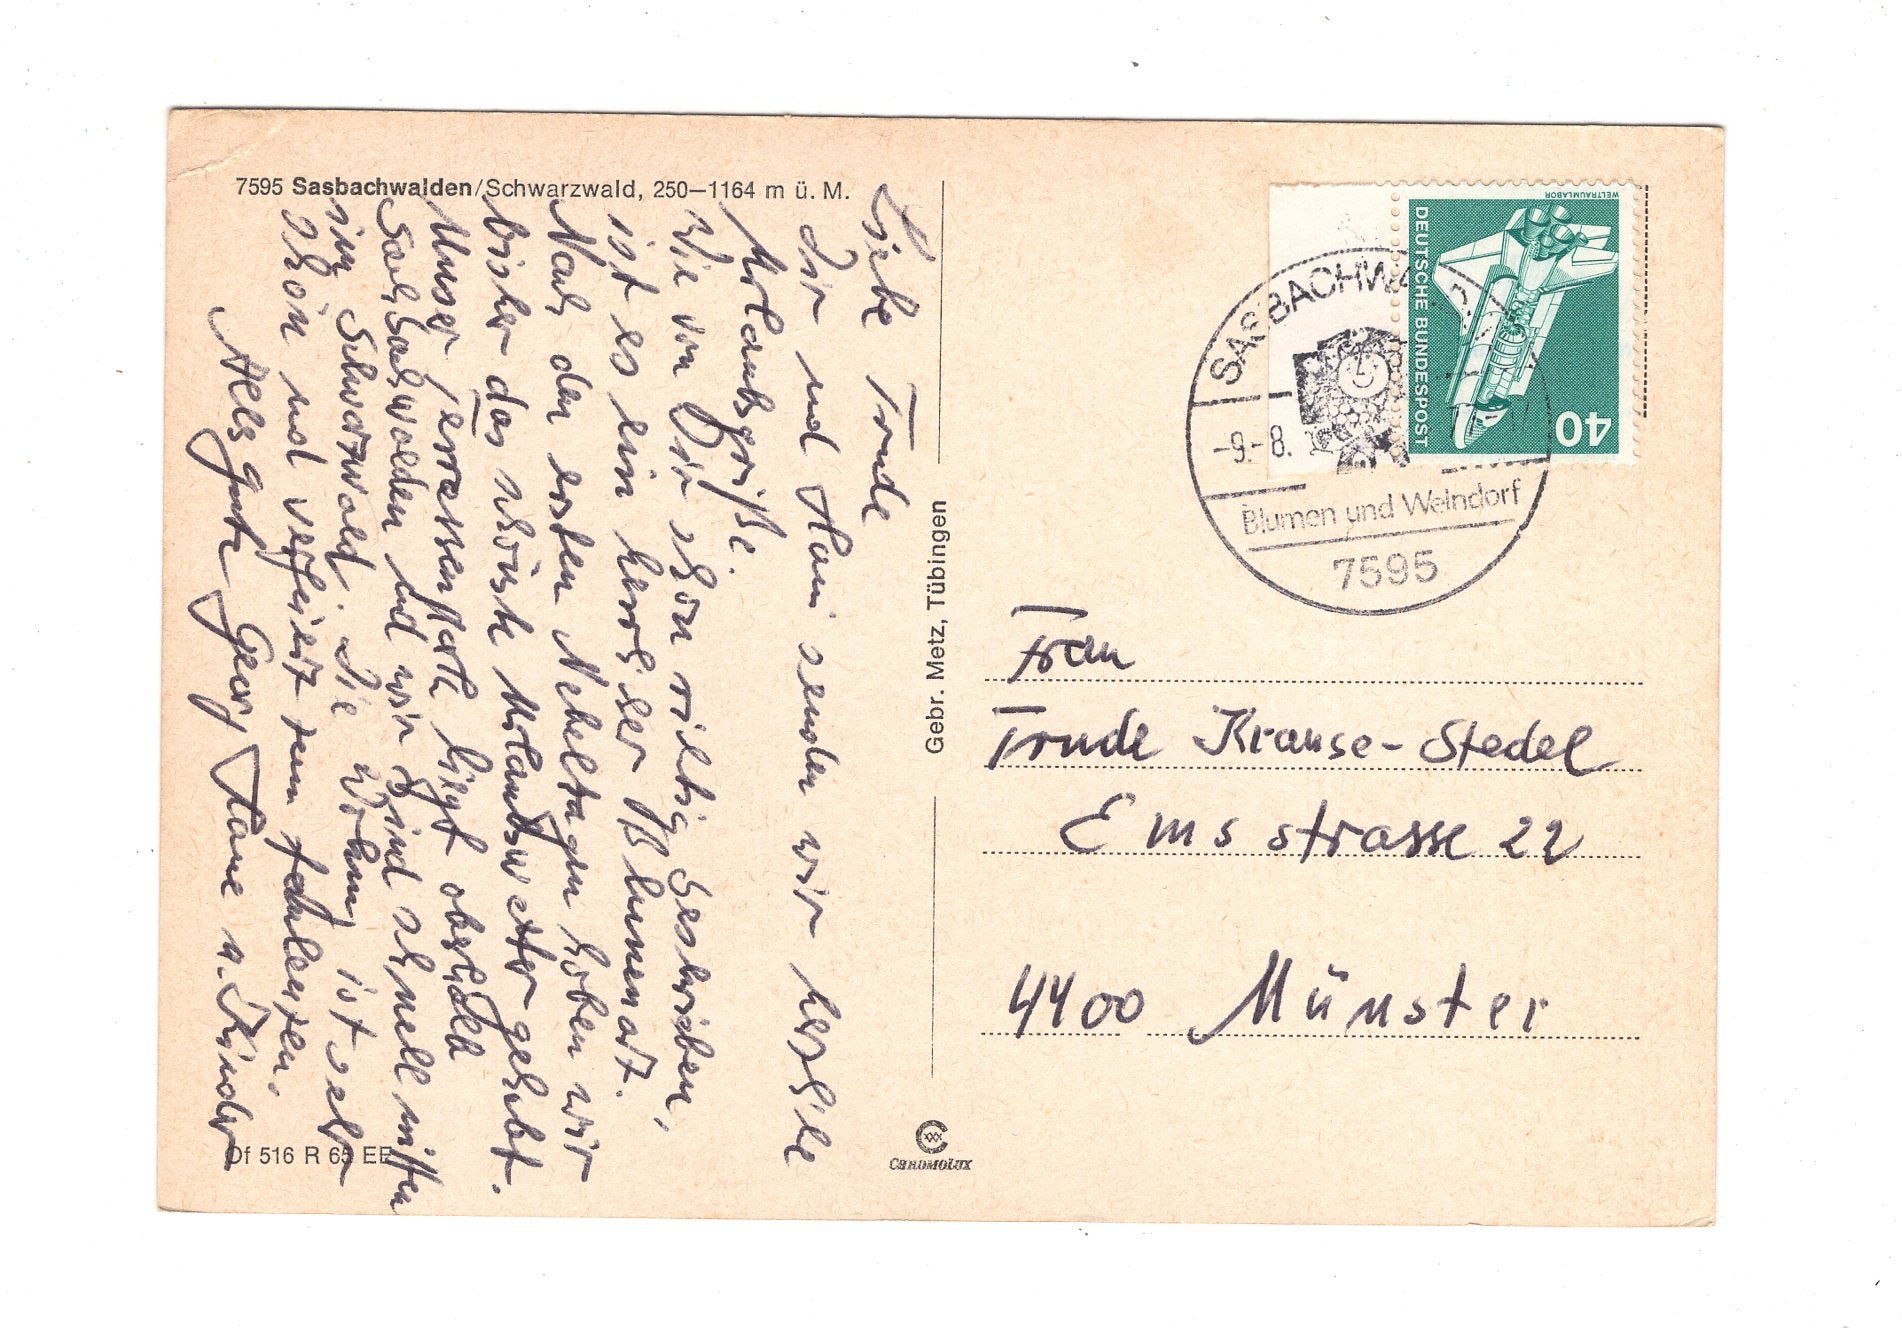 7595 Sasbachwalden/Schwarzwald, 250–1164 m ü. M.
Liebe Trude
dir und Hani senden wir herzliche
Urlaubsgrüße.
Wie von Dir schon richtig geschrieben,
ist es ein herrlicher Blumenort.
Nach den ersten Nebeltagen haben wir
bisher das schönste Urlaubswetter gehabt.
Unser Terrassenparte liegt oberhalb
Sasbachwalden und wir sind schnell mitten
im Schwarzwald. Die Wohnung ist sehr
schön und verführt zum faulenzen.
Alles gute Georg, Hane u. Kinder
Df 516 R 65 EE
Gebr. Metz, Tübingen
CHROMOLUX
WELTRAUMLABOR
DEUTSCHE BUNDESPOST
40
SASBACHWALDEN
-9.-8.
Blumen und Weindorf
7595
Frau
Trude Krause-Stedel
Emsstrasse 22
4400 Münster